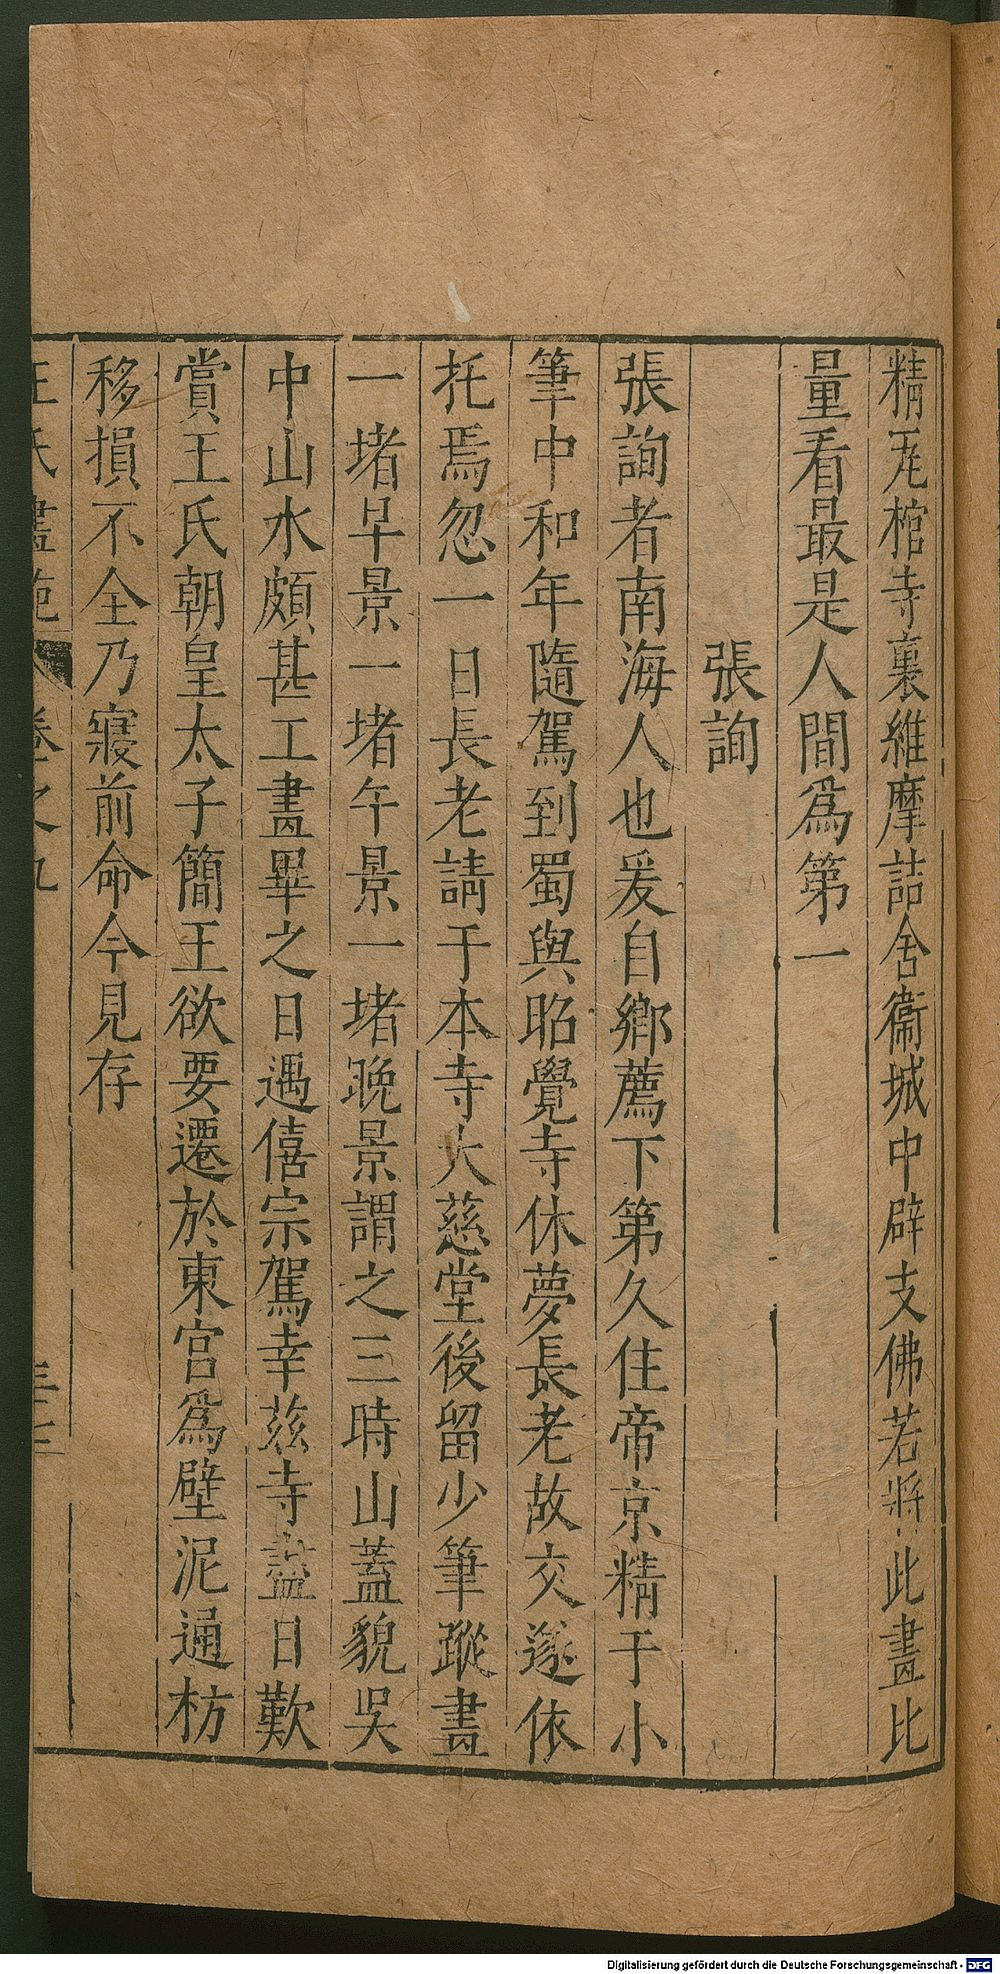 精瓦棺寺裏維摩詰舍衞城中辟支佛若將此畫比
量看最是人間爲第一
張詢
張詢者南海人也爰自鄉薦下第久住帝京精于小
筆中和年隨駕到蜀與昭覺寺休夢長老故交遂依
托焉忽一日長老請于本寺大慈堂後留少筆蹤畫
一堵早景一堵午景一堵晚景謂之三時山蓋貌吳
中山水頗甚工畫畢之日遇僖宗駕幸兹寺盡日歎
賞王氏朝皇太子簡王欲要遷於東宮爲壁泥通枋
移損不全乃寢前命今見存
王氏畫苑 卷之九 三十七
Digitalisierung gefördert durch die Deutsche Forschungsgemeinschaft - DFG